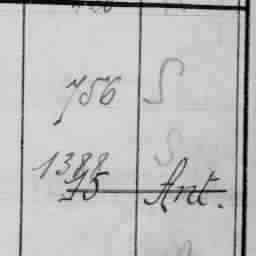 756 S
S
1388
75 Ant.